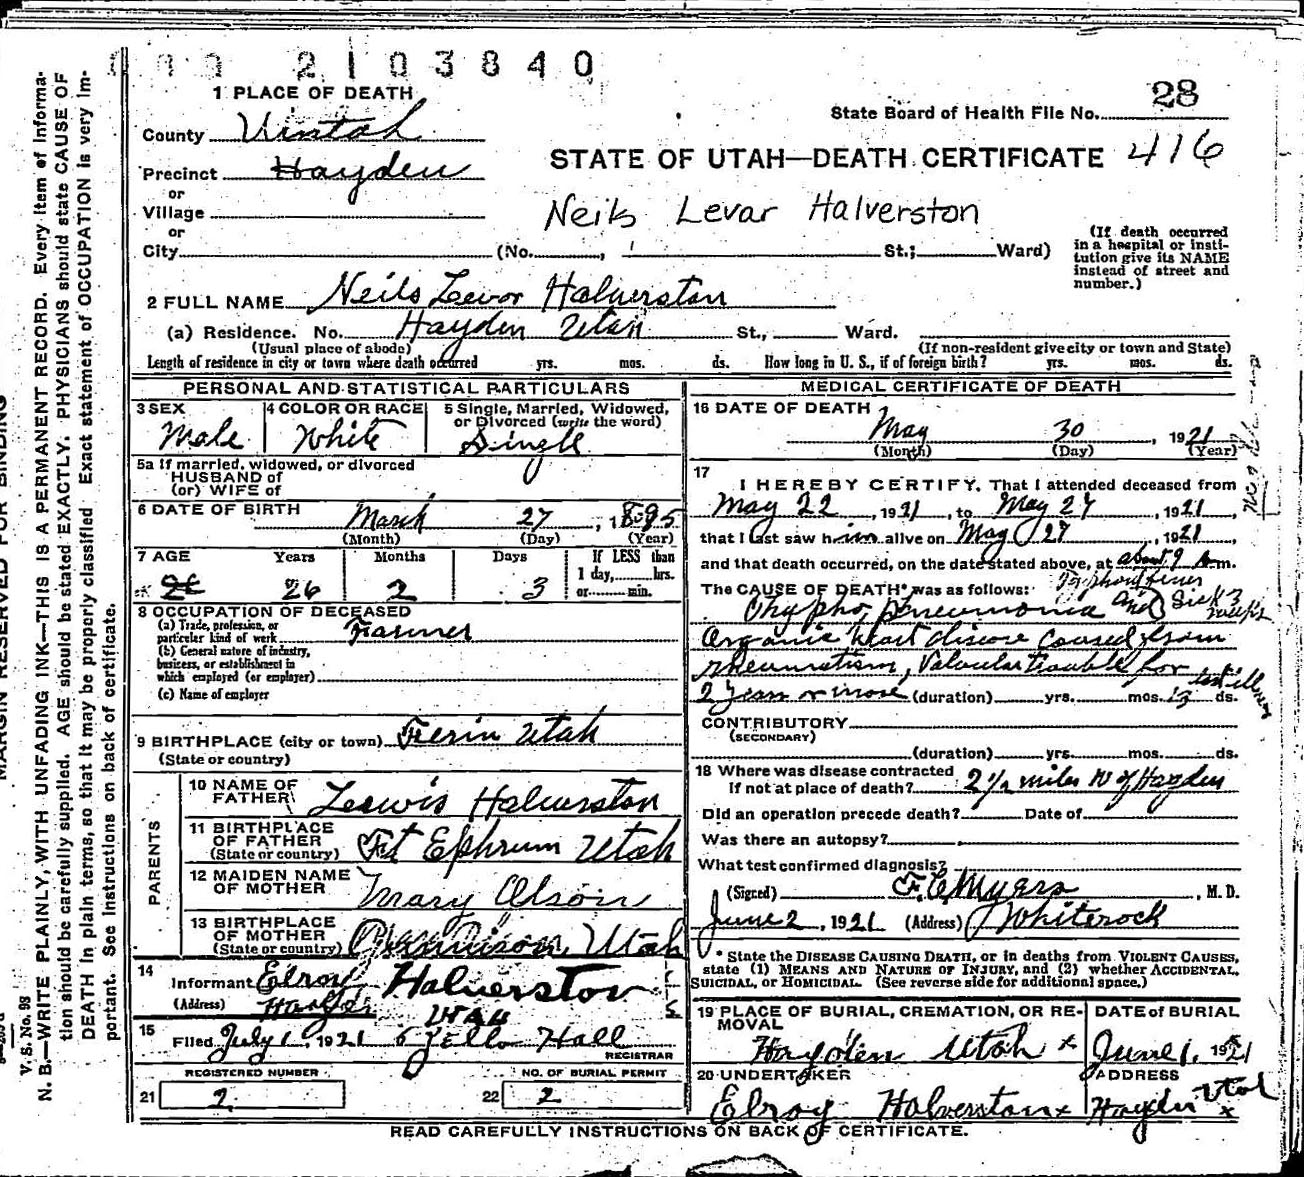 2103840
1 PLACE OF DEATH
State Board of Health File No. 28
County Uintah
STATE OF UTAH—DEATH CERTIFICATE 416
Precinct Hayden
or
Village
Neils Levar Halverston
or
City (No. , St.; Ward)
(If death occurred in a hospital or institution give its NAME instead of street and number.)
2 FULL NAME Neils Levor Halverston
(a) Residence. No. Hayden Utah St., Ward.
(Usual place of abode) (If non-resident give city or town and State)
Length of residence in city or town where death occurred yrs. mos. ds. How long in U. S., if of foreign birth? yrs. mos. ds.
PERSONAL AND STATISTICAL PARTICULARS
3 SEX Male
4 COLOR OR RACE White
5 Single, Married, Widowed, or Divorced (write the word) Single
5a If married, widowed, or divorced
HUSBAND of
(or) WIFE of
6 DATE OF BIRTH March 27, 1895
(Month) (Day) (Year)
7 AGE Years Months Days If LESS than
26 2 3 1 day, hrs.
or min.
8 OCCUPATION OF DECEASED
(a) Trade, profession, or particular kind of work Farmer
(b) General nature of industry, business, or establishment in which employed (or employer)
(c) Name of employer
9 BIRTHPLACE (city or town) Ferin Utah
(State or country)
PARENTS
10 NAME OF FATHER Leewis Halverston
11 BIRTHPLACE OF FATHER (State or country) Ft Ephrum Utah
12 MAIDEN NAME OF MOTHER Mary Olson
13 BIRTHPLACE OF MOTHER (State or country) Utah
14 Informant Elroy Halverston
(Address) Hayden Utah
15 Filed July 1, 1921 Hall
REGISTRAR
REGISTERED NUMBER NO. OF BURIAL PERMIT
21 2 22 2
MEDICAL CERTIFICATE OF DEATH
16 DATE OF DEATH
May 30, 1921
(Month) (Day) (Year)
17
I HEREBY CERTIFY, That I attended deceased from
May 22, 1921, to May 27, 1921,
that I last saw him alive on May 27, 1921,
and that death occurred, on the date stated above, at about 9 A m.
The CAUSE OF DEATH* was as follows: Typhoid fever
Pneumonia and Sick 3 weeks
Organic heart disease caused from
rheumatism, Valvular trouble for
2 years or more (duration) yrs. mos. 13 ds. last illness
CONTRIBUTORY
(SECONDARY)
(duration) yrs. mos. ds.
18 Where was disease contracted
If not at place of death? 2 1/2 miles N of Hayden
Did an operation precede death? Date of
Was there an autopsy?
What test confirmed diagnosis?
(Signed) F. E. Myers, M. D.
June 2, 1921 (Address) Whiterock
* State the DISEASE CAUSING DEATH, or in deaths from VIOLENT CAUSES,
state (1) MEANS AND NATURE OF INJURY, and (2) whether ACCIDENTAL,
SUICIDAL, or HOMICIDAL. (See reverse side for additional space.)
19 PLACE OF BURIAL, CREMATION, OR REMOVAL
Hayden Utah x
DATE of BURIAL
June 1, 1921
20 UNDERTAKER
Elroy Halverston x
ADDRESS
Hayden Utah x
READ CAREFULLY INSTRUCTIONS ON BACK OF CERTIFICATE.
MARGIN RESERVED FOR BINDING
V. S. No. 98
N. B.—WRITE PLAINLY, WITH UNFADING INK—THIS IS A PERMANENT RECORD. Every item of information
should be carefully supplied. AGE should be stated EXACTLY. PHYSICIANS should state CAUSE OF
DEATH in plain terms, so that it may be properly classified. Exact statement of OCCUPATION is very important.
See instructions on back of certificate.